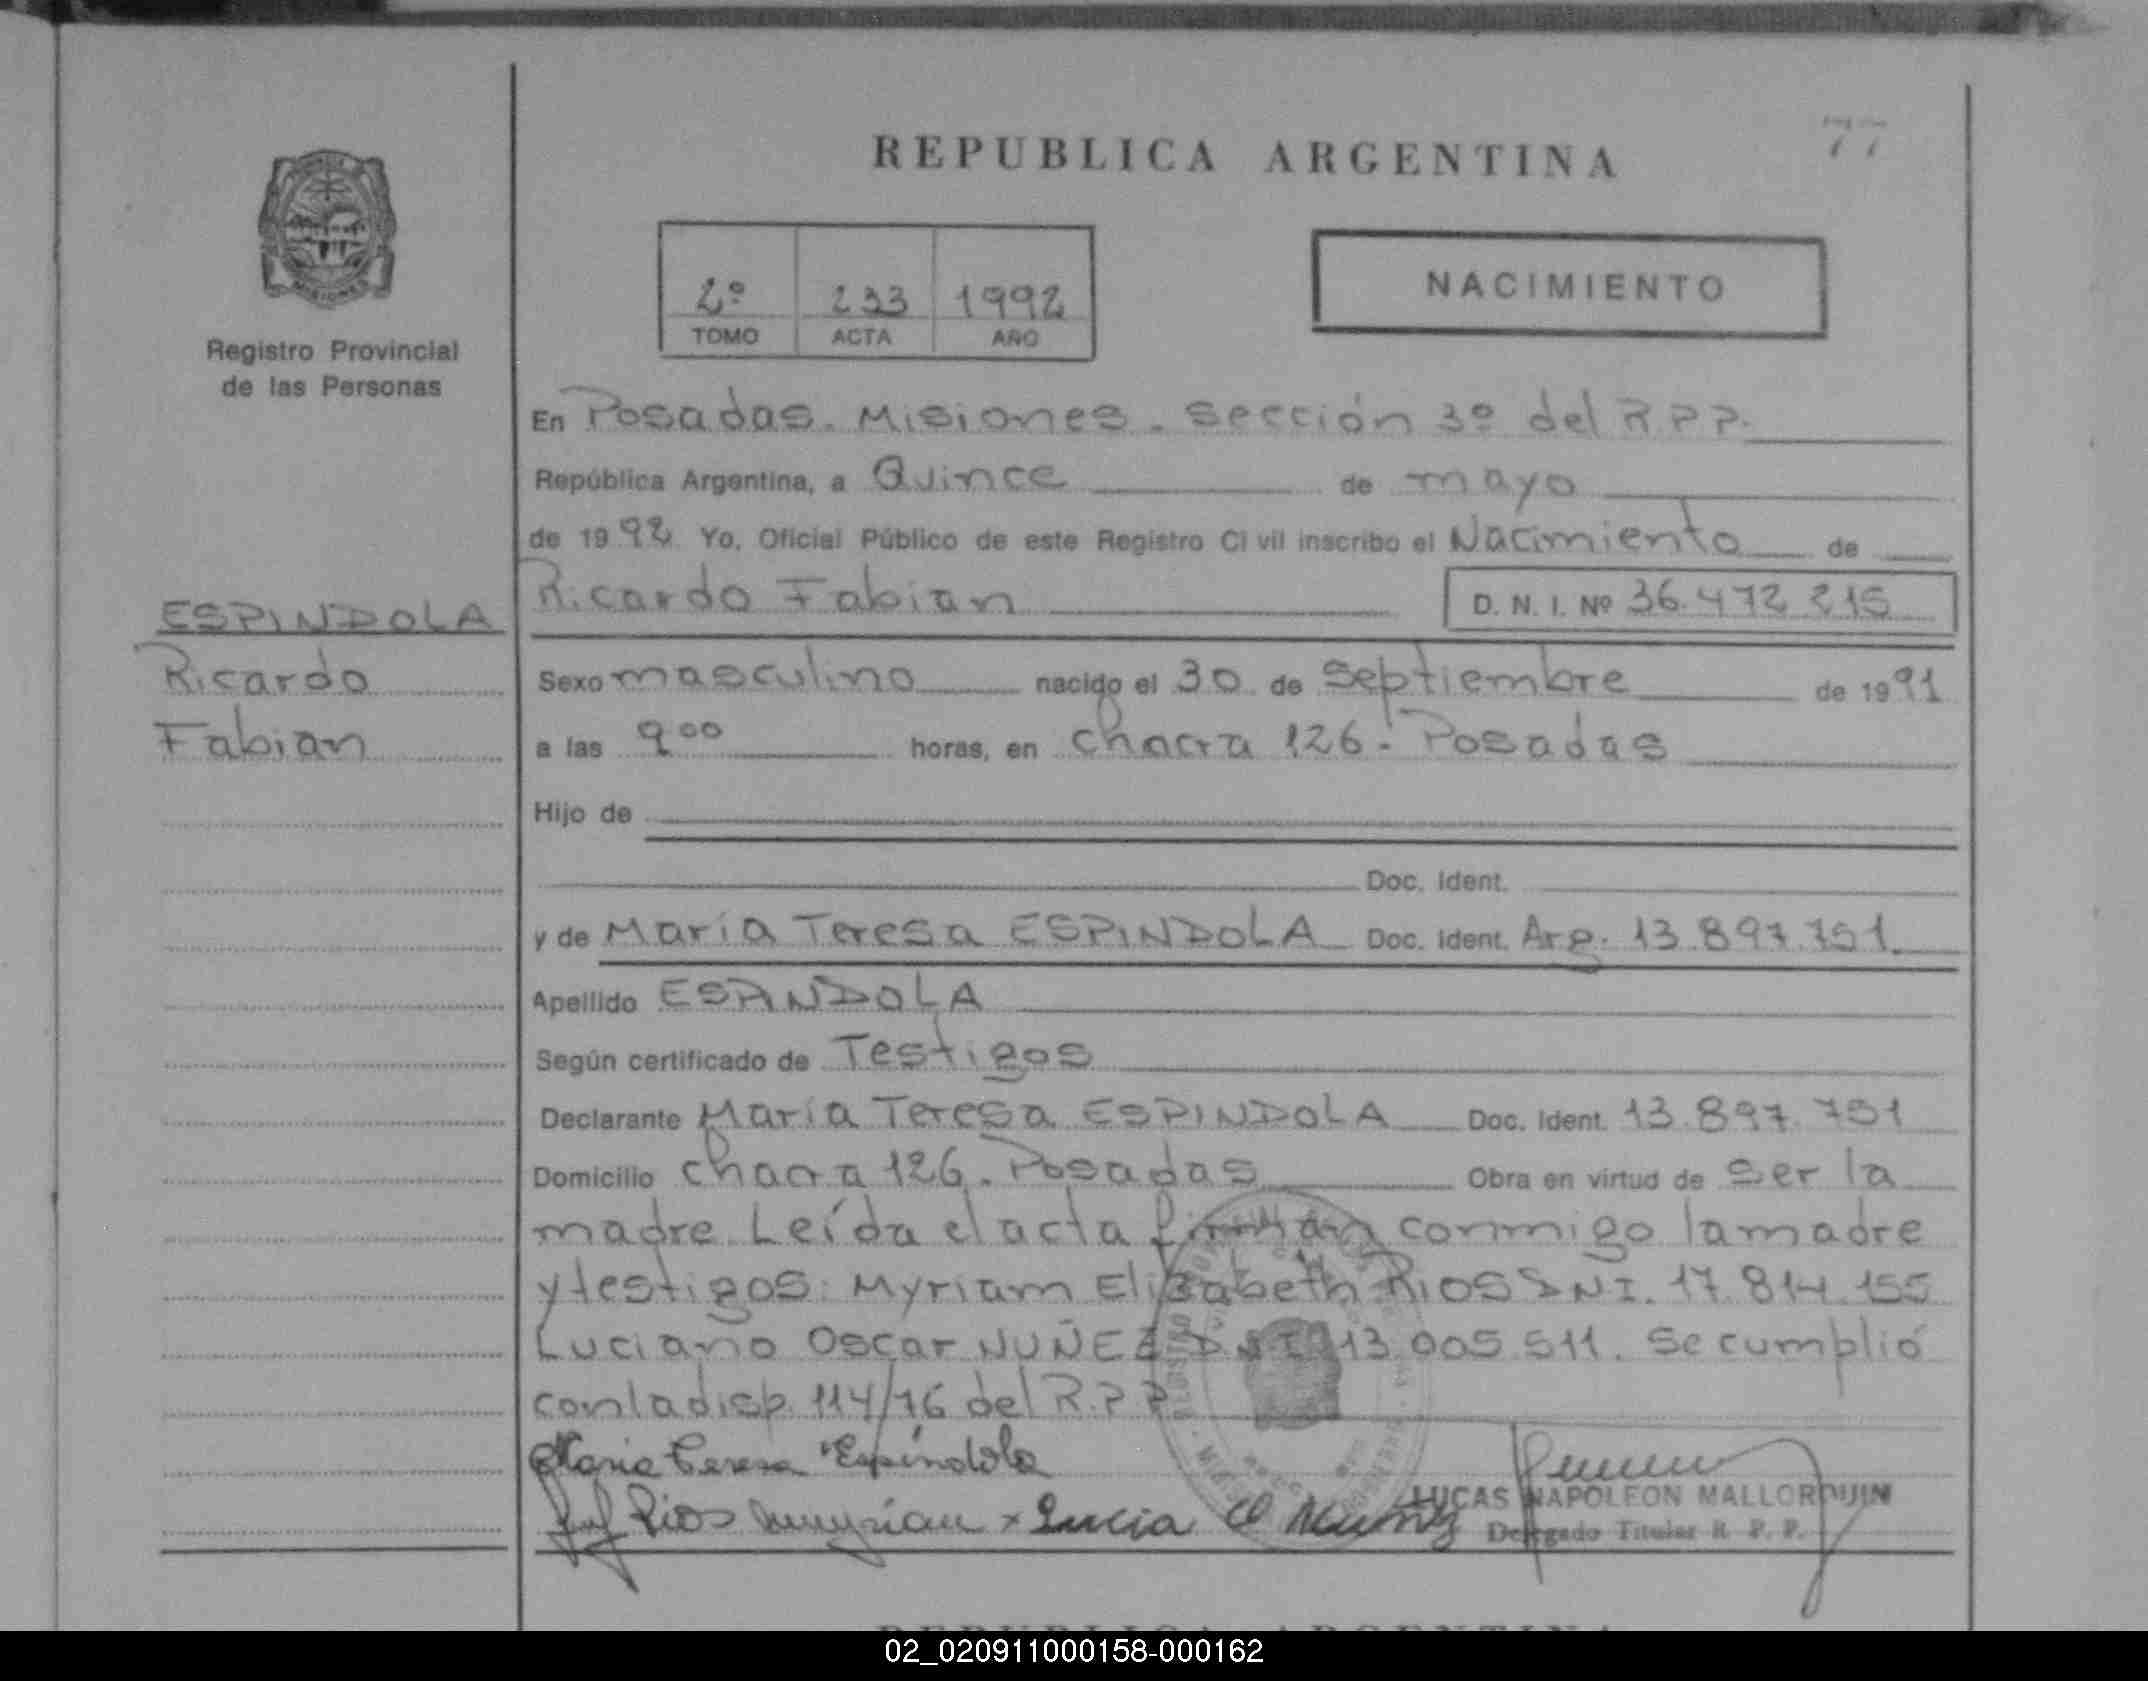 77
REPUBLICA ARGENTINA
MISIONES
Registro Provincial
de las Personas
2º 233 1992
TOMO ACTA AÑO
NACIMIENTO
En Posadas. Misiones. Sección 3º del R.P.P.
República Argentina, a Quince de mayo
de 1992 Yo, Oficial Público de este Registro Civil inscribo el Nacimiento de
Ricardo Fabian D. N. I. Nº 36.472.215
ESPINDOLA
Ricardo
Fabian
Sexo masculino nacido el 30 de Septiembre de 1991
a las 9 00 horas, en chacra 126. Posadas
Hijo de
Doc. Ident.
y de María Teresa ESPINDOLA Doc. Ident. Arg. 13.897.751
Apellido ESPINDOLA
Según certificado de Testigos
Declarante María Teresa ESPINDOLA Doc. Ident. 13.897.751
Domicilio chacra 126. Posadas Obra en virtud de ser la
madre. Leída el acta firman conmigo la madre
y testigos: Myriam Elizabeth RIOS DNI. 17.814.155
Luciano Oscar NUÑEZ DNI 13.005.511. Se cumplió
con la disp. 114/76 del R.P.P.
Maria Teresa Espíndola
LUCAS NAPOLEON MALLORQUIN
Delegado Titular R. P. P.
REPUBLICA ARGENTINA
02_020911000158-000162